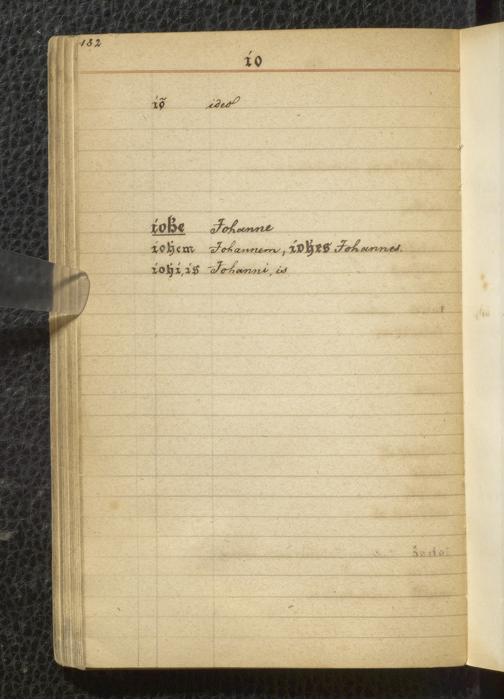 182
io
iō ideo
iohe Johanne
iohem Johannem, iohes Johannes.
iohi, is Johanni, is